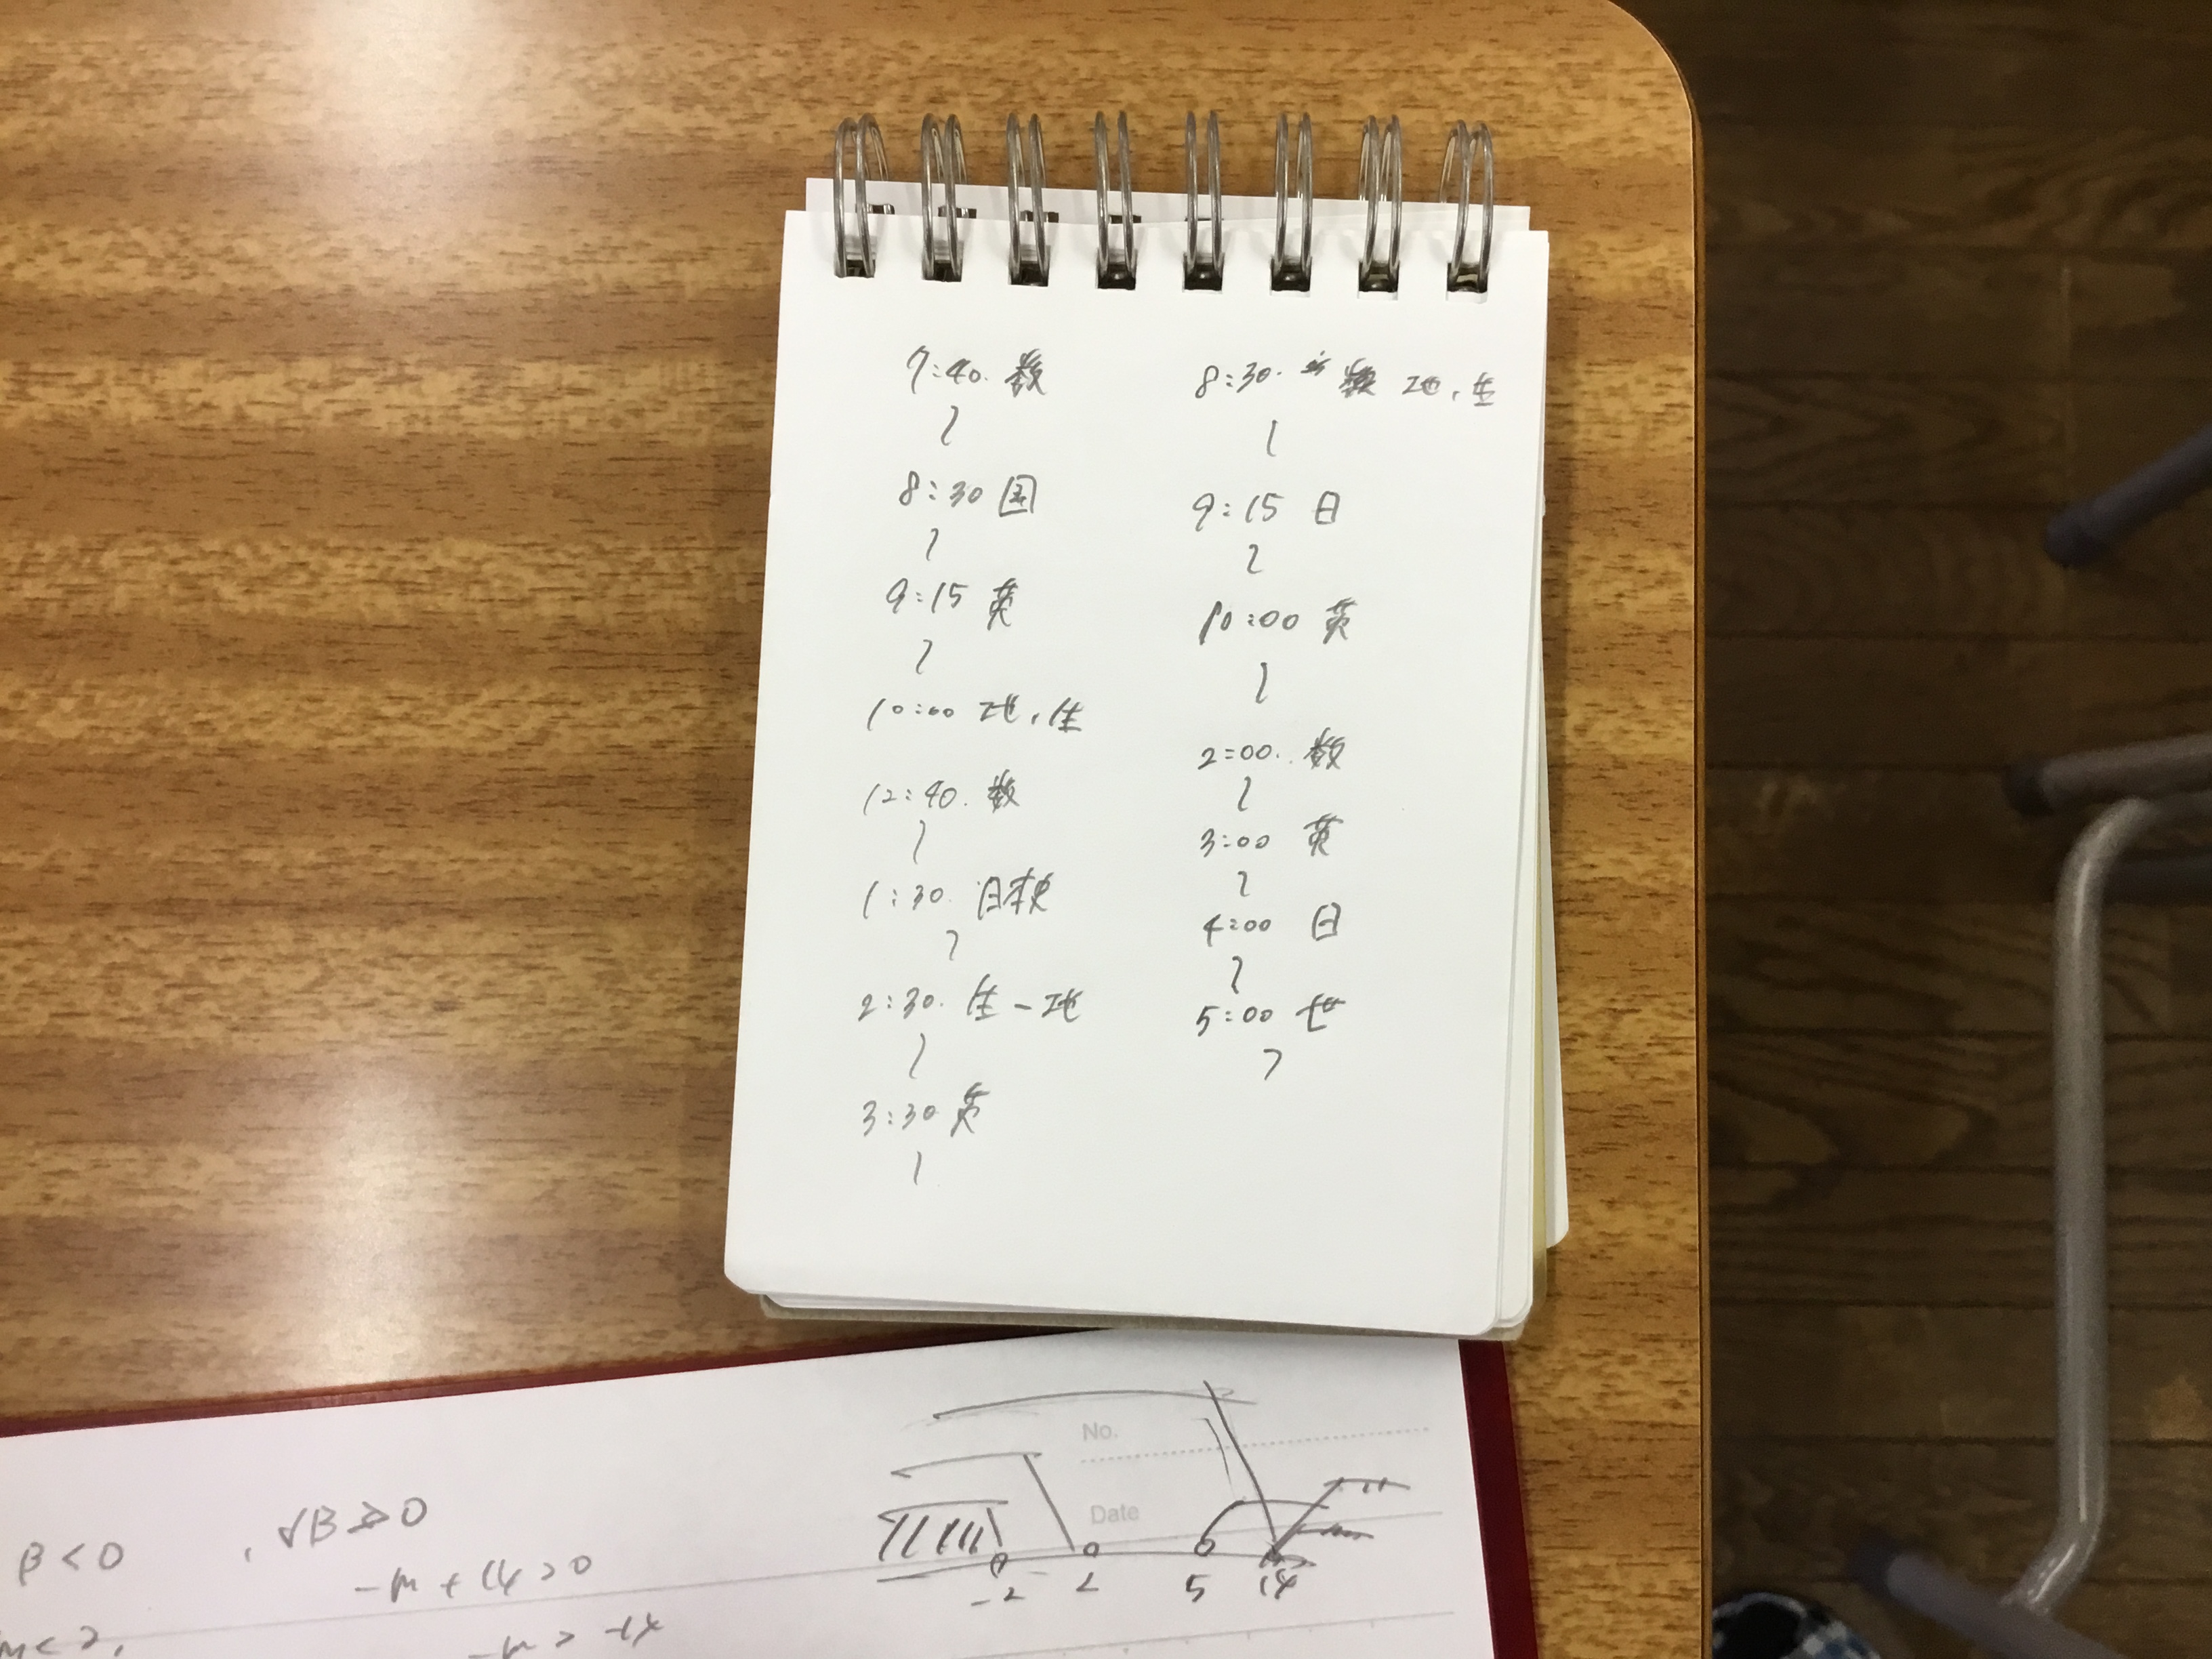 7:40. 数
〜
8:30 国
〜
9:15 英
〜
10:00 地,生
12:40. 数
〜
1:30. 日本史
〜
2:30. 生-地
〜
3:30 英
〜
8:30. 地,生
〜
9:15 日
〜
10:00 英
〜
2:00. 数
〜
3:00 英
〜
4:00 日
〜
5:00 世
〜
No.
Date
β<0 , √B≧0
-m+14>0
m<2,
-m>-14
-2 2 5 14